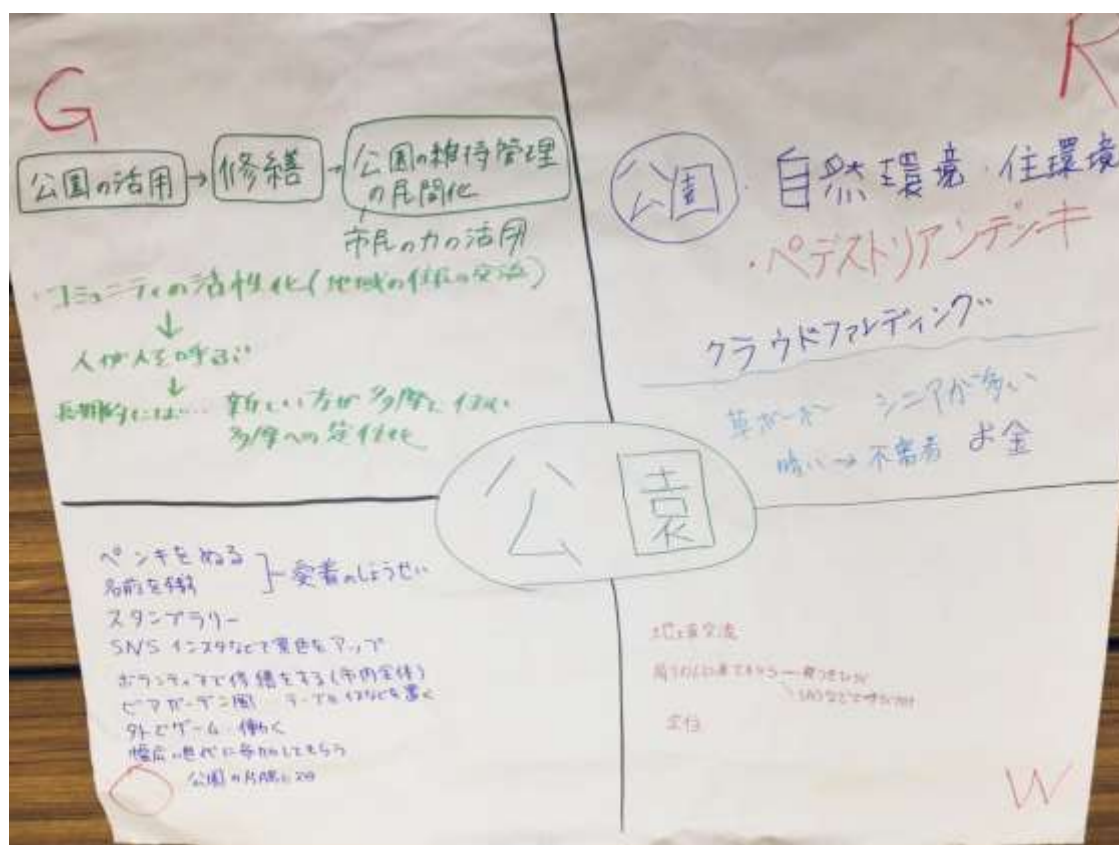 G
公園の活用→修繕→公園の維持管理
の民間化
市民の力の活用
・コミュニティの活性化(地域の住民の交流)
↓
人が人を呼ぶ
↓
長期的には…新しい方が多摩に住む
多摩への定住化
R
公園・自然環境・住環境
・ペデストリアンデッキ
クラウドファンディング
草ボーボー シニアが多い
暗い→不審者 お金
公園
ペンキをぬる
名前を
愛着のじょうせい
スタンプラリー
SNS インスタなどで景色をアップ
ボランティアで修繕をする(市内全体)
ビアガーデン風 テーブルイスなどを置く
外でゲーム・働く
幅広い世代に参加してもらう
公園の
地域交流
SNSなどで呼びかけ
定住
W